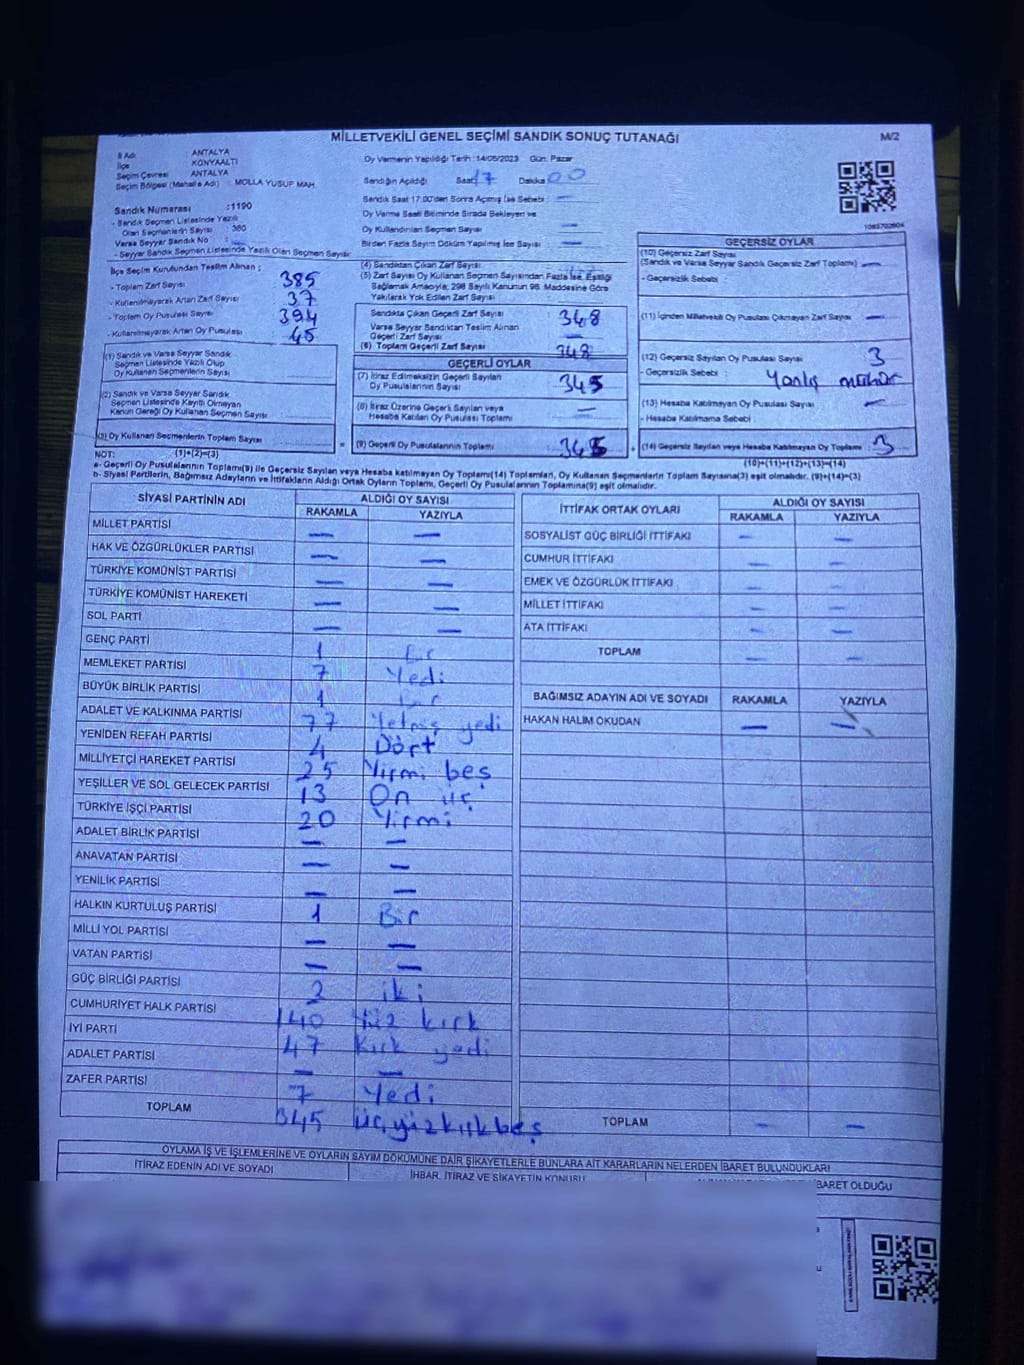 MİLLETVEKİLİ GENEL SEÇİMİ SANDIK SONUÇ TUTANAĞI
M/2
İl Adı ANTALYA
İlçe KONYAALTI
Seçim Çevresi ANTALYA
Seçim Bölgesi (Mahalle Adı) : MOLLA YUSUF MAH.
Oy Vermenin Yapıldığı Tarih :14/05/2023 Gün: Pazar
Sandığın Açıldığı Saat 17 Dakika 00
Sandık Saat 17.00'den Sonra Açılmış İse Sebebi : —
Oy Verme Saati Bitiminde Sırada Bekleyen ve
Oy Kullandırılan Seçmen Sayısı —
Birden Fazla Sayım Döküm Yapılmış İse Sayısı : —
Sandık Numarası :1190
- Sandık Seçmen Listesinde Yazılı
Olan Seçmenlerin Sayısı : 380
Varsa Seyyar Sandık No :
- Seyyar Sandık Seçmen Listesinde Yazılı Olan Seçmen Sayısı
İlçe Seçim Kurulundan Teslim Alınan ;
- Toplam Zarf Sayısı : 385
- Kullanılmayarak Artan Zarf Sayısı : 37
- Toplam Oy Pusulası Sayısı : 394
- Kullanılmayarak Artan Oy Pusulası : 45
(1) Sandık ve Varsa Seyyar Sandık
Seçmen Listesinde Yazılı Olup
Oy Kullanan Seçmenlerin Sayısı
(2) Sandık ve Varsa Seyyar Sandık
Seçmen Listesinde Kayıtlı Olmayan
Kanun Gereği Oy Kullanan Seçmen Sayısı
(3) Oy Kullanan Seçmenlerin Toplam Sayısı
(1)+(2)=(3)
(4) Sandıktan Çıkan Zarf Sayısı
(5) Zarf Sayısı Oy Kullanan Seçmen Sayısından Fazla İse, Eşitliği
Sağlamak Amacıyla; 298 Sayılı Kanunun 98. Maddesine Göre
Yakılarak Yok Edilen Zarf Sayısı
Sandıkta Çıkan Geçerli Zarf Sayısı : 348
Varsa Seyyar Sandıktan Teslim Alınan
Geçerli Zarf Sayısı : —
(6) Toplam Geçerli Zarf Sayısı 348
GEÇERLİ OYLAR
(7) İtiraz Edilmeksizin Geçerli Sayılan
Oy Pusulalarının Sayısı : 345
(8) İtiraz Üzerine Geçerli Sayılan veya
Hesaba Katılan Oy Pusulası Toplamı : —
(9) Geçerli Oy Pusulalarının Toplamı : 345
1083702604
GEÇERSİZ OYLAR
(10) Geçersiz Zarf Sayısı
(Sandık ve Varsa Seyyar Sandık Geçersiz Zarf Toplamı) —
- Geçersizlik Sebebi :
(11) İçinden Milletvekili Oy Pusulası Çıkmayan Zarf Sayısı —
(12) Geçersiz Sayılan Oy Pusulası Sayısı 3
- Geçersizlik Sebebi : Yanlış mühür
(13) Hesaba Katılmayan Oy Pusulası Sayısı —
- Hesaba Katılmama Sebebi :
(14) Geçersiz Sayılan veya Hesaba Katılmayan Oy Toplamı : 3
(10)+(11)+(12)+(13)=(14)
NOT:
a- Geçerli Oy Pusulalarının Toplamı(9) ile Geçersiz Sayılan veya Hesaba katılmayan Oy Toplamı(14) Toplamları, Oy Kullanan Seçmenlerin Toplam Sayısına(3) eşit olmalıdır. (9)+(14)=(3)
b- Siyasi Partilerin, Bağımsız Adayların ve İttifakların Aldığı Ortak Oyların Toplamı, Geçerli Oy Pusulalarının Toplamına(9) eşit olmalıdır.
SİYASİ PARTİNİN ADI ALDIĞI OY SAYISI
RAKAMLA YAZIYLA
MİLLET PARTİSİ — —
HAK VE ÖZGÜRLÜKLER PARTİSİ — —
TÜRKİYE KOMÜNİST PARTİSİ — —
TÜRKİYE KOMÜNİST HAREKETİ — —
SOL PARTİ — —
GENÇ PARTİ 1 Bir
MEMLEKET PARTİSİ 7 Yedi
BÜYÜK BİRLİK PARTİSİ 1 Bir
ADALET VE KALKINMA PARTİSİ 77 Yetmiş yedi
YENİDEN REFAH PARTİSİ 4 Dört
MİLLİYETÇİ HAREKET PARTİSİ 25 Yirmi beş
YEŞİLLER VE SOL GELECEK PARTİSİ 13 On üç
TÜRKİYE İŞÇİ PARTİSİ 20 Yirmi
ADALET BİRLİK PARTİSİ — —
ANAVATAN PARTİSİ — —
YENİLİK PARTİSİ — —
HALKIN KURTULUŞ PARTİSİ 1 Bir
MİLLİ YOL PARTİSİ — —
VATAN PARTİSİ — —
GÜÇ BİRLİĞİ PARTİSİ 2 iki
CUMHURİYET HALK PARTİSİ 140 Yüz kırk
İYİ PARTİ 47 Kırk yedi
ADALET PARTİSİ — —
ZAFER PARTİSİ 7 Yedi
TOPLAM 345 üçyüzkırkbeş
İTTİFAK ORTAK OYLARI ALDIĞI OY SAYISI
RAKAMLA YAZIYLA
SOSYALİST GÜÇ BİRLİĞİ İTTİFAKI — —
CUMHUR İTTİFAKI — —
EMEK VE ÖZGÜRLÜK İTTİFAKI — —
MİLLET İTTİFAKI — —
ATA İTTİFAKI — —
TOPLAM — —
BAĞIMSIZ ADAYIN ADI VE SOYADI RAKAMLA YAZIYLA
HAKAN HALİM OKUDAN — —
TOPLAM — —
OYLAMA İŞ VE İŞLEMLERİNE VE OYLARIN SAYIM DÖKÜMÜNE DAİR ŞİKAYETLERLE BUNLARA AİT KARARLARIN NELERDEN İBARET BULUNDUKLARI
İTİRAZ EDENİN ADI VE SOYADI İHBAR, İTİRAZ VE ŞİKAYETİN KONUSU İBARET OLDUĞU